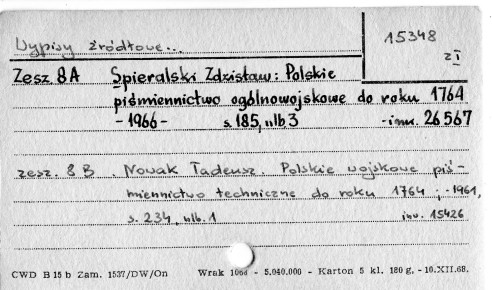 Wypisy źródłowe...
15348
z I
Zesz 8A Spieralski Zdzisław: Polskie
piśmiennictwo ogólnowojskowe do roku 1764
- 1966 - s. 185, nlb 3 - inw. 26567
zesz. 8 B . Nowak Tadeusz. Polskie wojskowe piś-
miennictwo techniczne do roku 1764 ; - 1961,
s. 234, nlb. 1 inw. 15426
CWD B 15 b Zam. 1537/DW/On Wrak 1064 - 5.040.000 - Karton 5 kl. 180 g. - 10.XII.68.